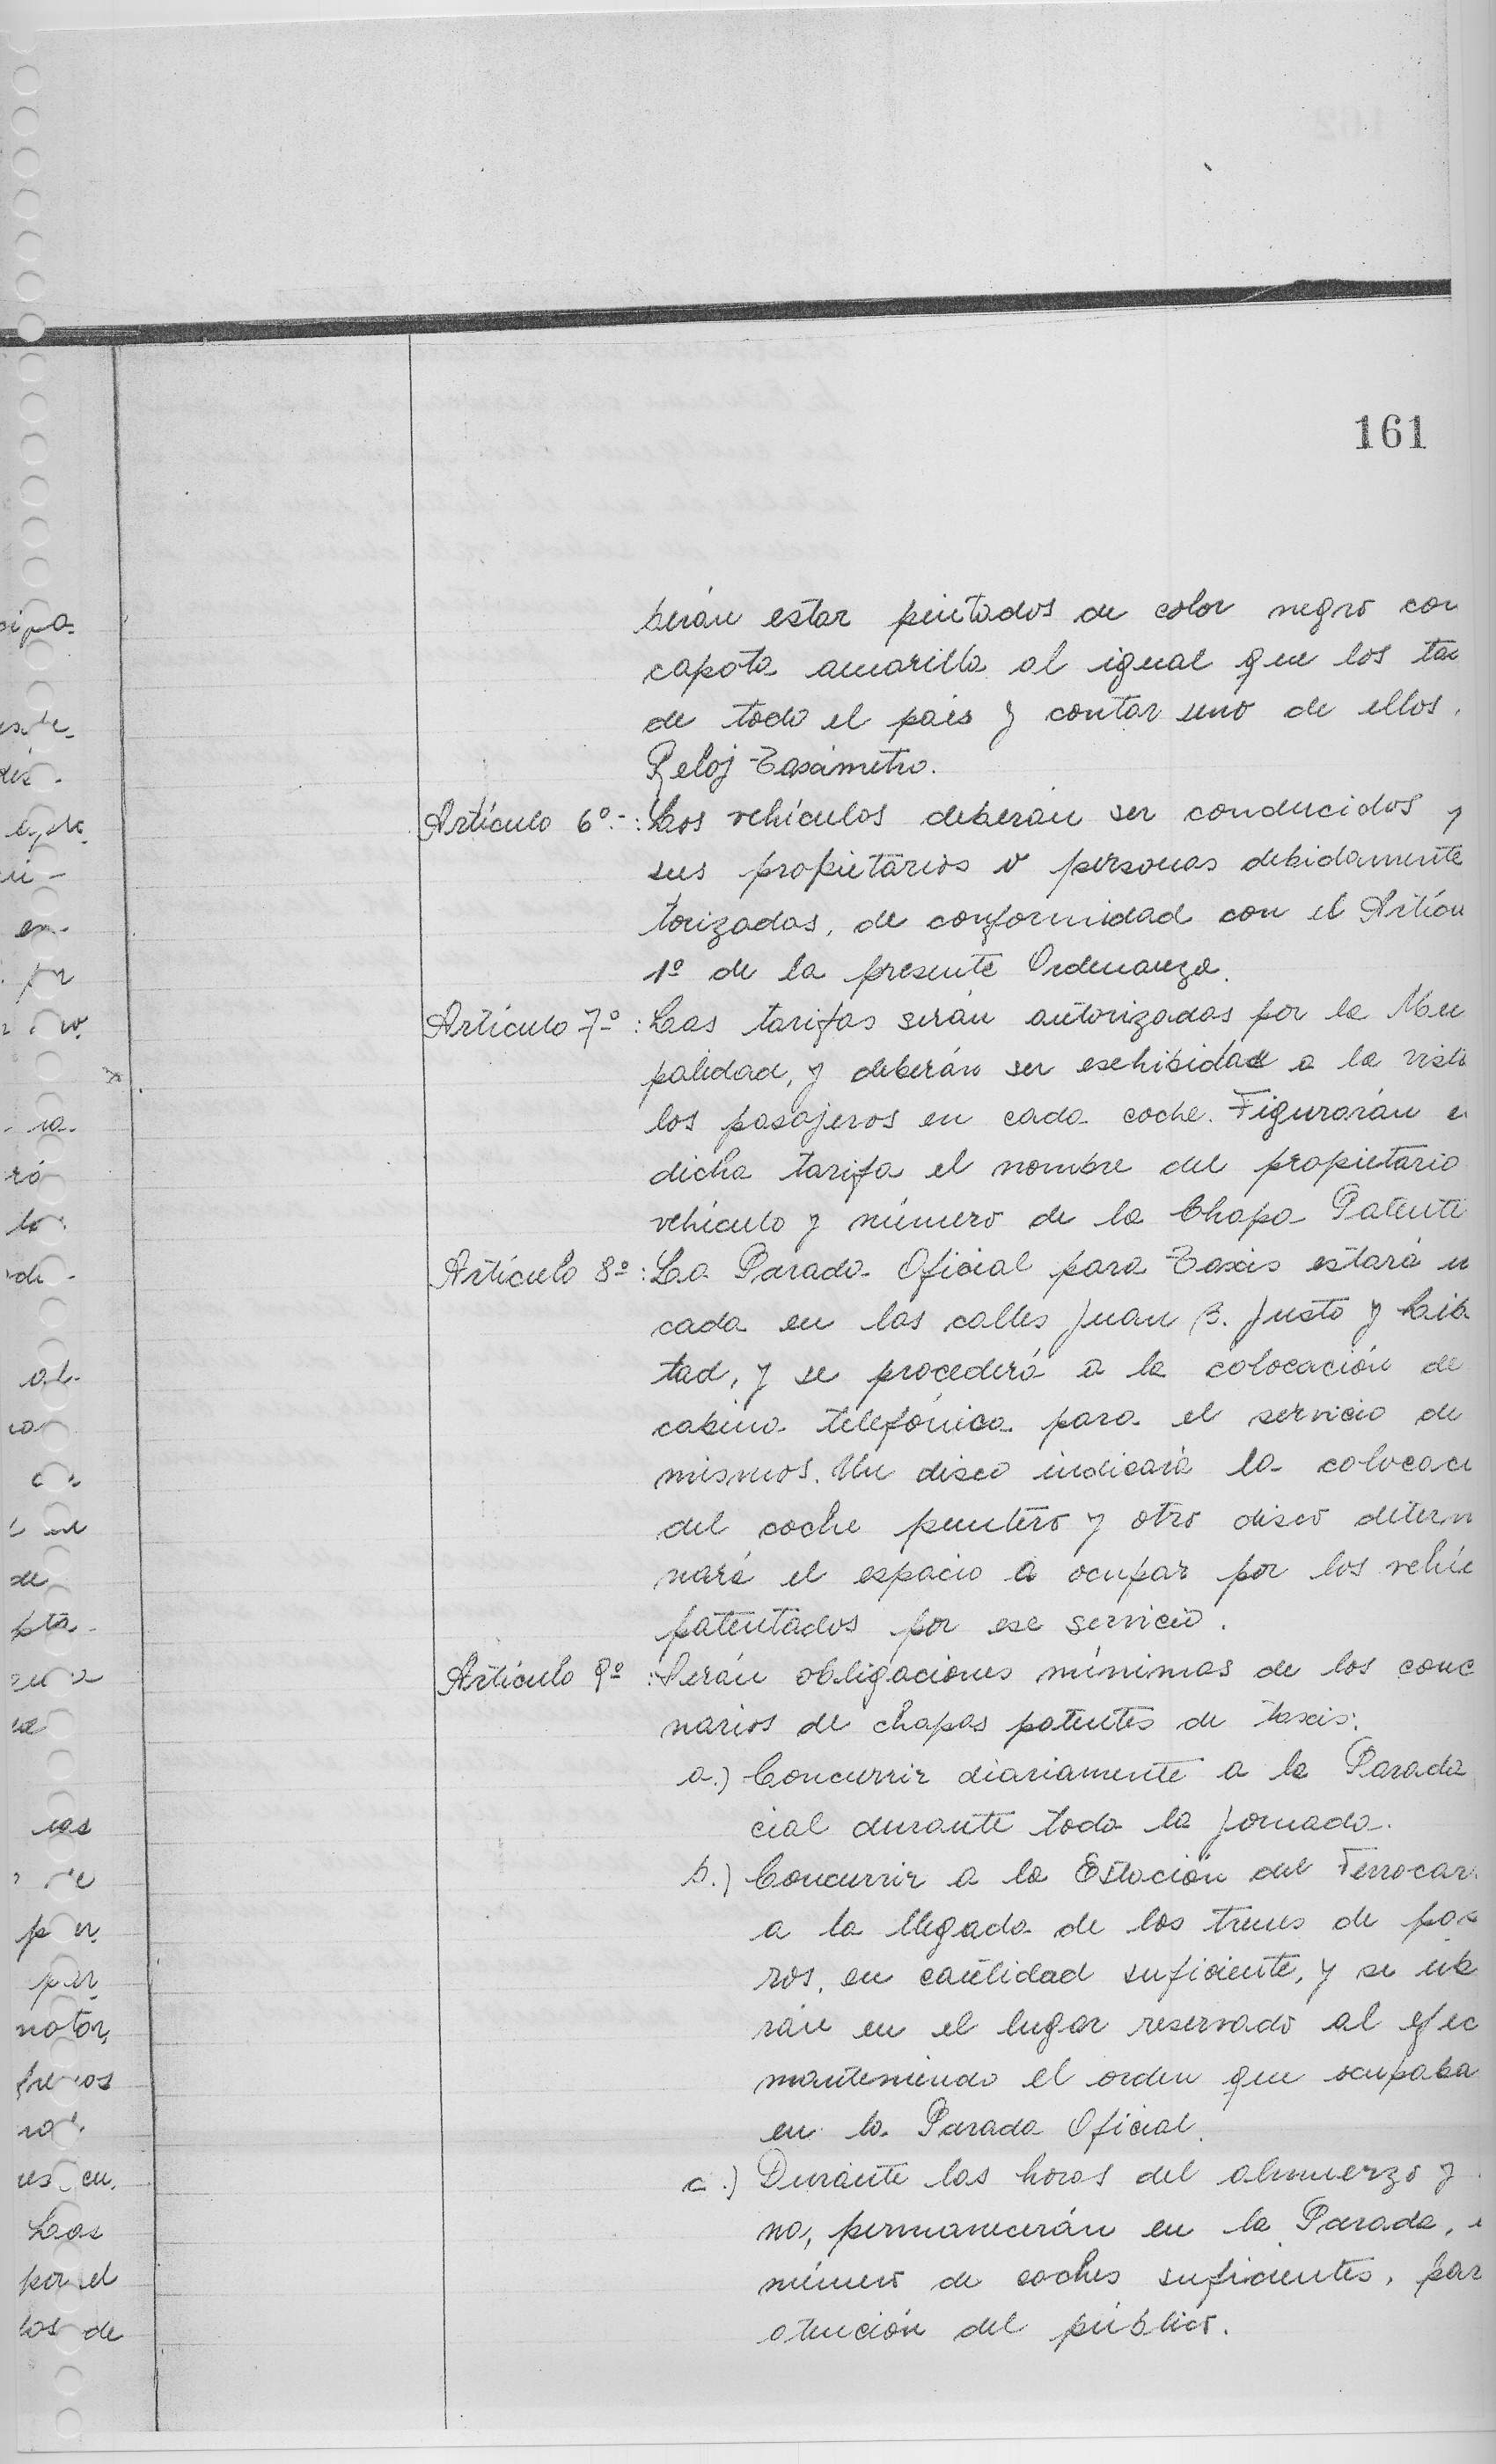 161
berán estar pintados de color negro con
capota amarilla al igual que los ta
de todo el país y contar uno de ellos.
Reloj-Taxímetro.
Artículo 6º.-: Los vehículos deberán ser conducidos
sus propietarios o personas debidamente
torizadas, de conformidad con el Artícu
1º de la presente Ordenanza.
Artículo 7º: Las tarifas serán autorizadas por la Mu
palidad, y deberán ser exhibidas a la vist
los pasajeros en cada coche. Figurarán e
dicha tarifa el nombre del propietario
vehículo y número de la Chapa Patente
Artículo 8º: La Parada Oficial para Taxis estará u
cada en las calles Juan B. Justo y Lib
tad, y se procederá a la colocación de
cabina telefónica para el servicio de
mismos. Un disco indicará la colocaci
del coche puntero y otro disco determ
nará el espacio a ocupar por los vehíc
patentados por ese servicio.
Artículo 9º: Serán obligaciones mínimas de los conc
narios de chapas patentes de taxis:
a.) Concurrir diariamente a la Parada
cial durante toda la jornada.
b.) Concurrir a la Estación del Ferrocar
a la llegada de los trenes de pas
ros, en cantidad suficiente, y se ub
rán en el lugar reservado al efec
manteniendo el orden que ocupaba
en la Parada Oficial.
c.) Durante las horas del almuerzo y
na, permanecerán en la Parada,
número de coches suficientes, par
atención del público.
por
motor,
Las
por el
los de